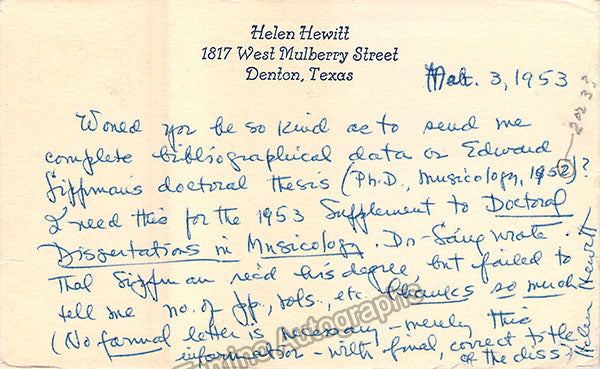 Helen Hewitt
1817 West Mulberry Street
Denton, Texas
Mar. 3, 1953
Would you be so kind as to send me
complete bibliographical data on Edward
Lippman's doctoral thesis (Ph.D., Musicology, 1952)?
2 or 3?
I need this for the 1953 Supplement to Doctoral
Dissertations in Musicology. Dr. Láng wrote
that Lippman rec'd his degree, but failed to
tell me no. of pp., vols., etc. Thanks so much
(No formal letter is necessary - merely this
information - with final, correct title
of the diss.)
Helen Hewitt
Tamino Autographs